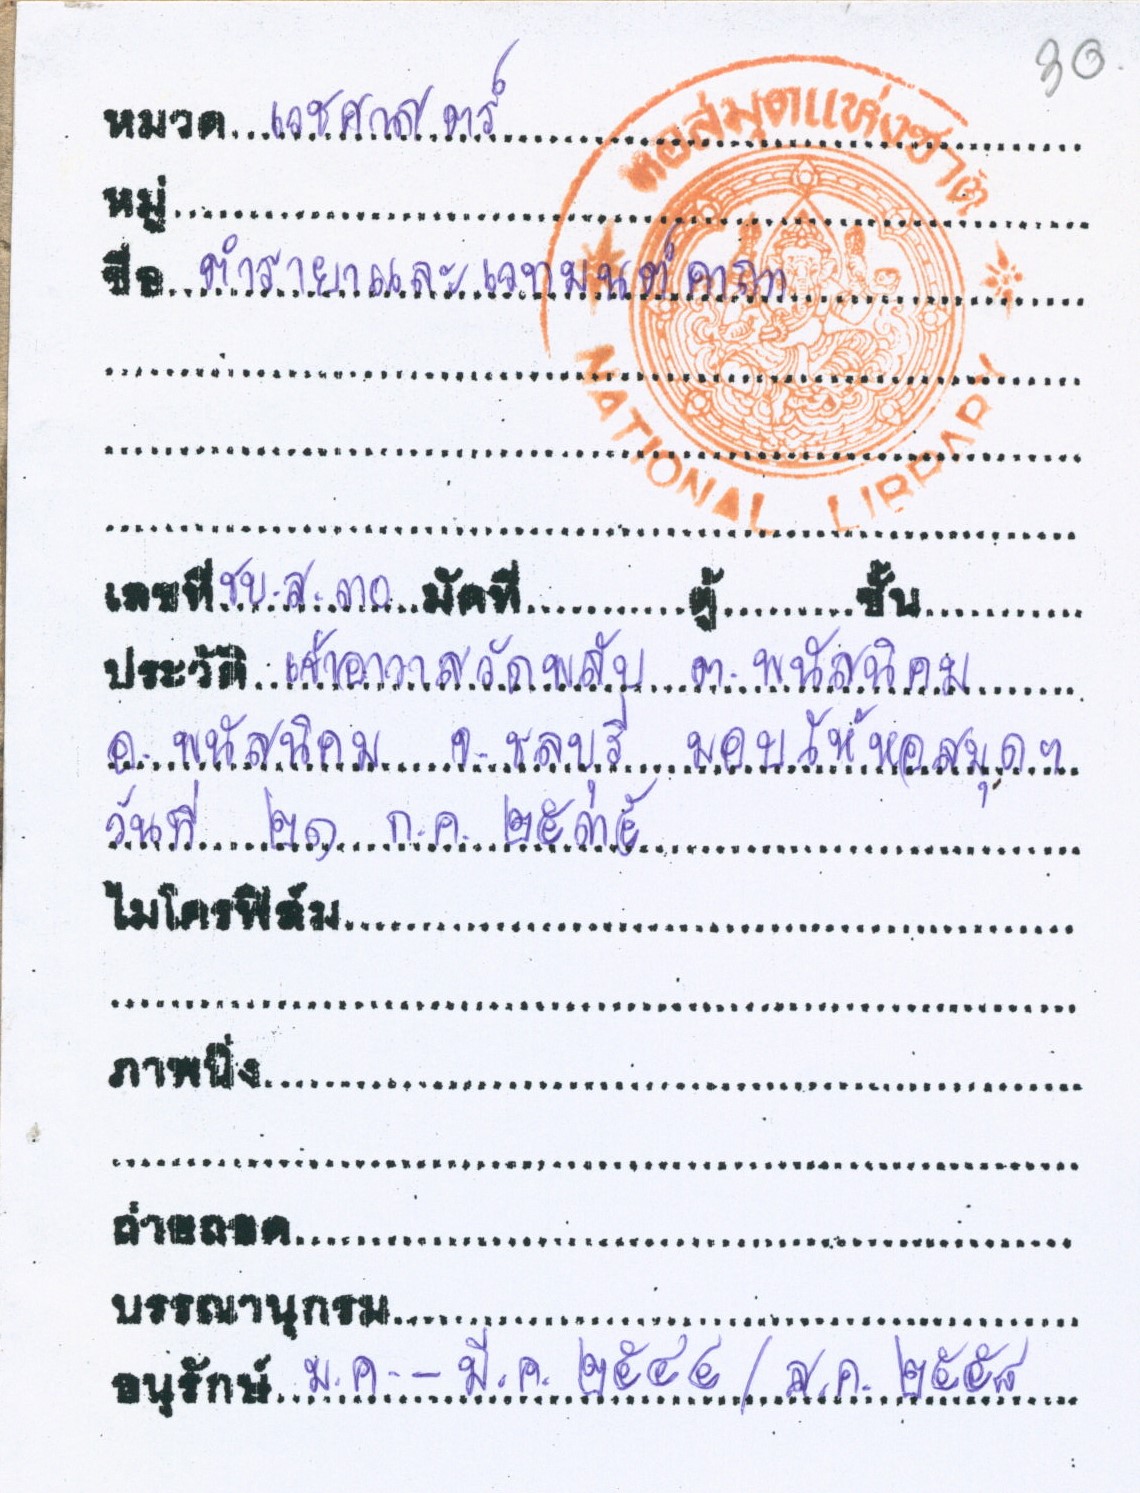 30
หมวด เวชศาสตร์
หมู่
ชื่อ ตำรายาและเวทมนต์คาถา
หอสมุดแห่งชาติ
NATIONAL LIBRARY
เลขที่ ชบ.ส.๓๐ มัดที่ ตู้ ชั้น
ประวัติ เจ้าอาวาสวัดพลับ ต.พนัสนิคม
อ.พนัสนิคม จ.ชลบุรี มอบให้หอสมุดฯ
วันที่ ๒๑ ก.ค. ๒๕๓๕
ไมโครฟิล์ม
ภาพนิ่ง
ถ่ายถอด
บรรณานุกรม
อนุรักษ์ ม.ค. - มี.ค. ๒๕๔๔ / ส.ค. ๒๕๕๘